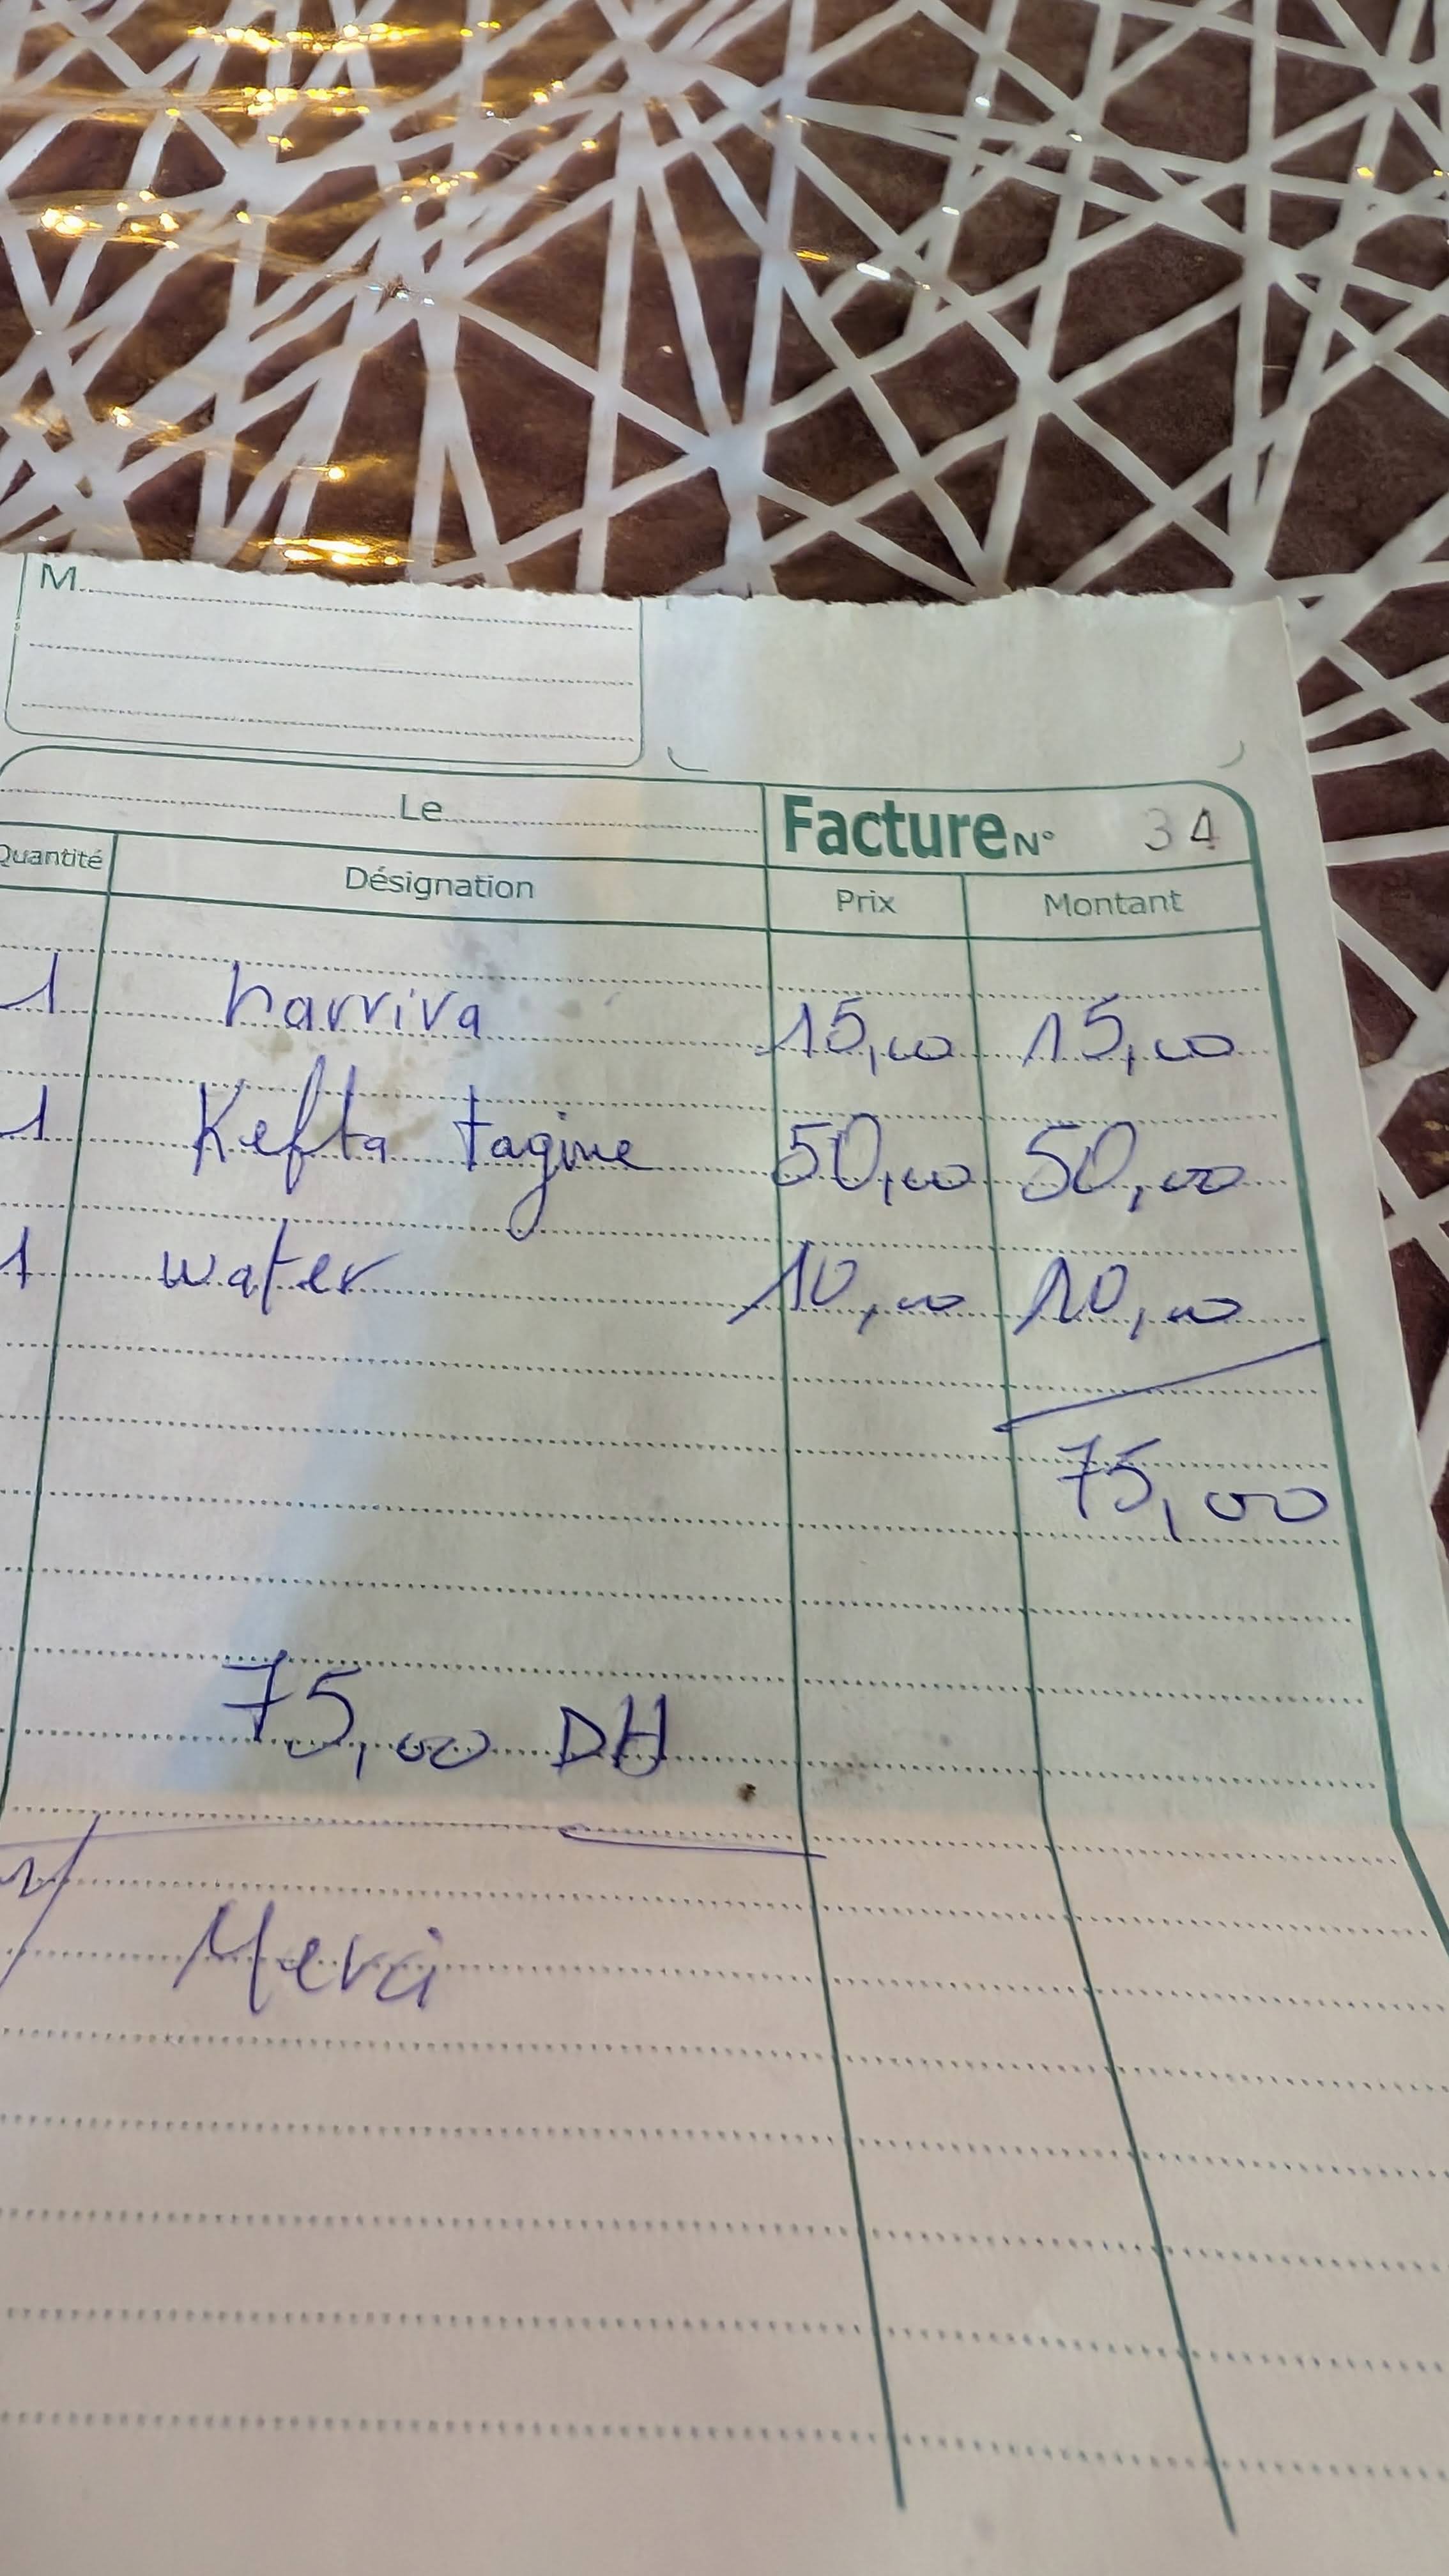 M
Le Facture N° 34
Quantité Désignation Prix Montant
1 harrira 15,00 15,00
1 Kefta tagine 50,00 50,00
1 water 10,00 10,00
75,00
75,00 DH
Merci